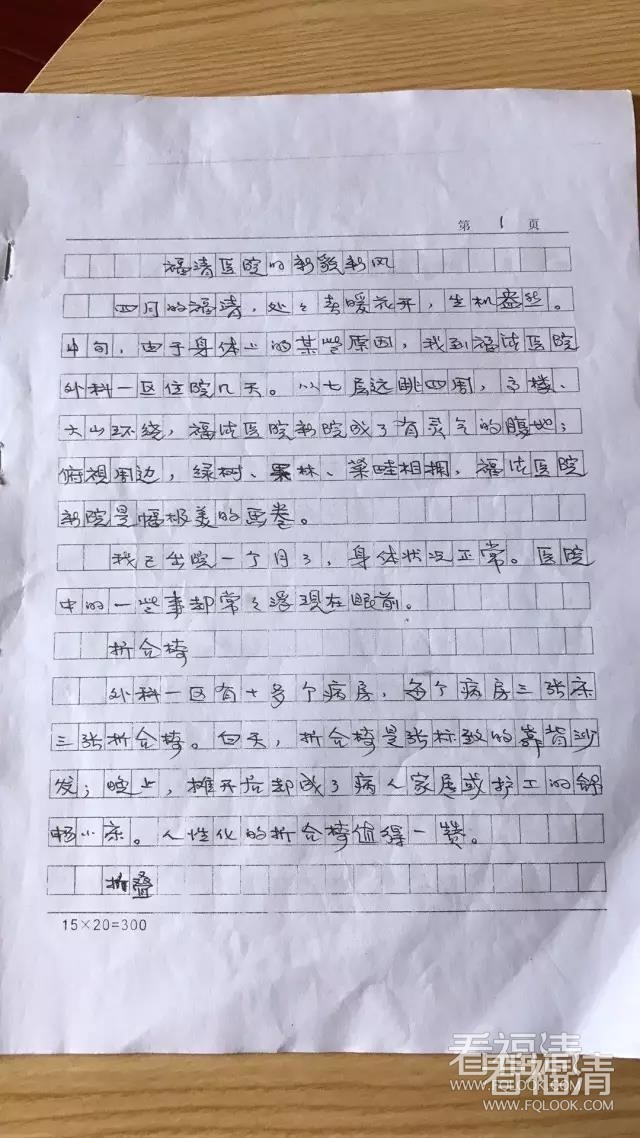 第 1 页
福清医院的新貌新风
四月的福清，处处春暖花开，生机盎然。
中旬，由于身体上的某些原因，我到福清医院
外科一区住院几天。从七层远眺四周，高楼、
大山环绕，福清医院新院成了有灵气的腹地；
俯视周边，绿树、果林、菜畦相拥，福清医院
新院是幅极美的画卷。
我已出院一个月了，身体状况正常。医院
中的一些事却常常浮现在眼前。
折合椅
外科一区有十多个病房，每个病房三张床
三张折合椅。白天，折合椅是张标致的靠背沙
发；晚上，摊开后却成了病人家属或护工的舒
畅小床。人性化的折合椅值得一赞。
折叠
15×20=300
看福清
WWW.FQLOOK.COM
看福清
WWW.FQLOOK.COM